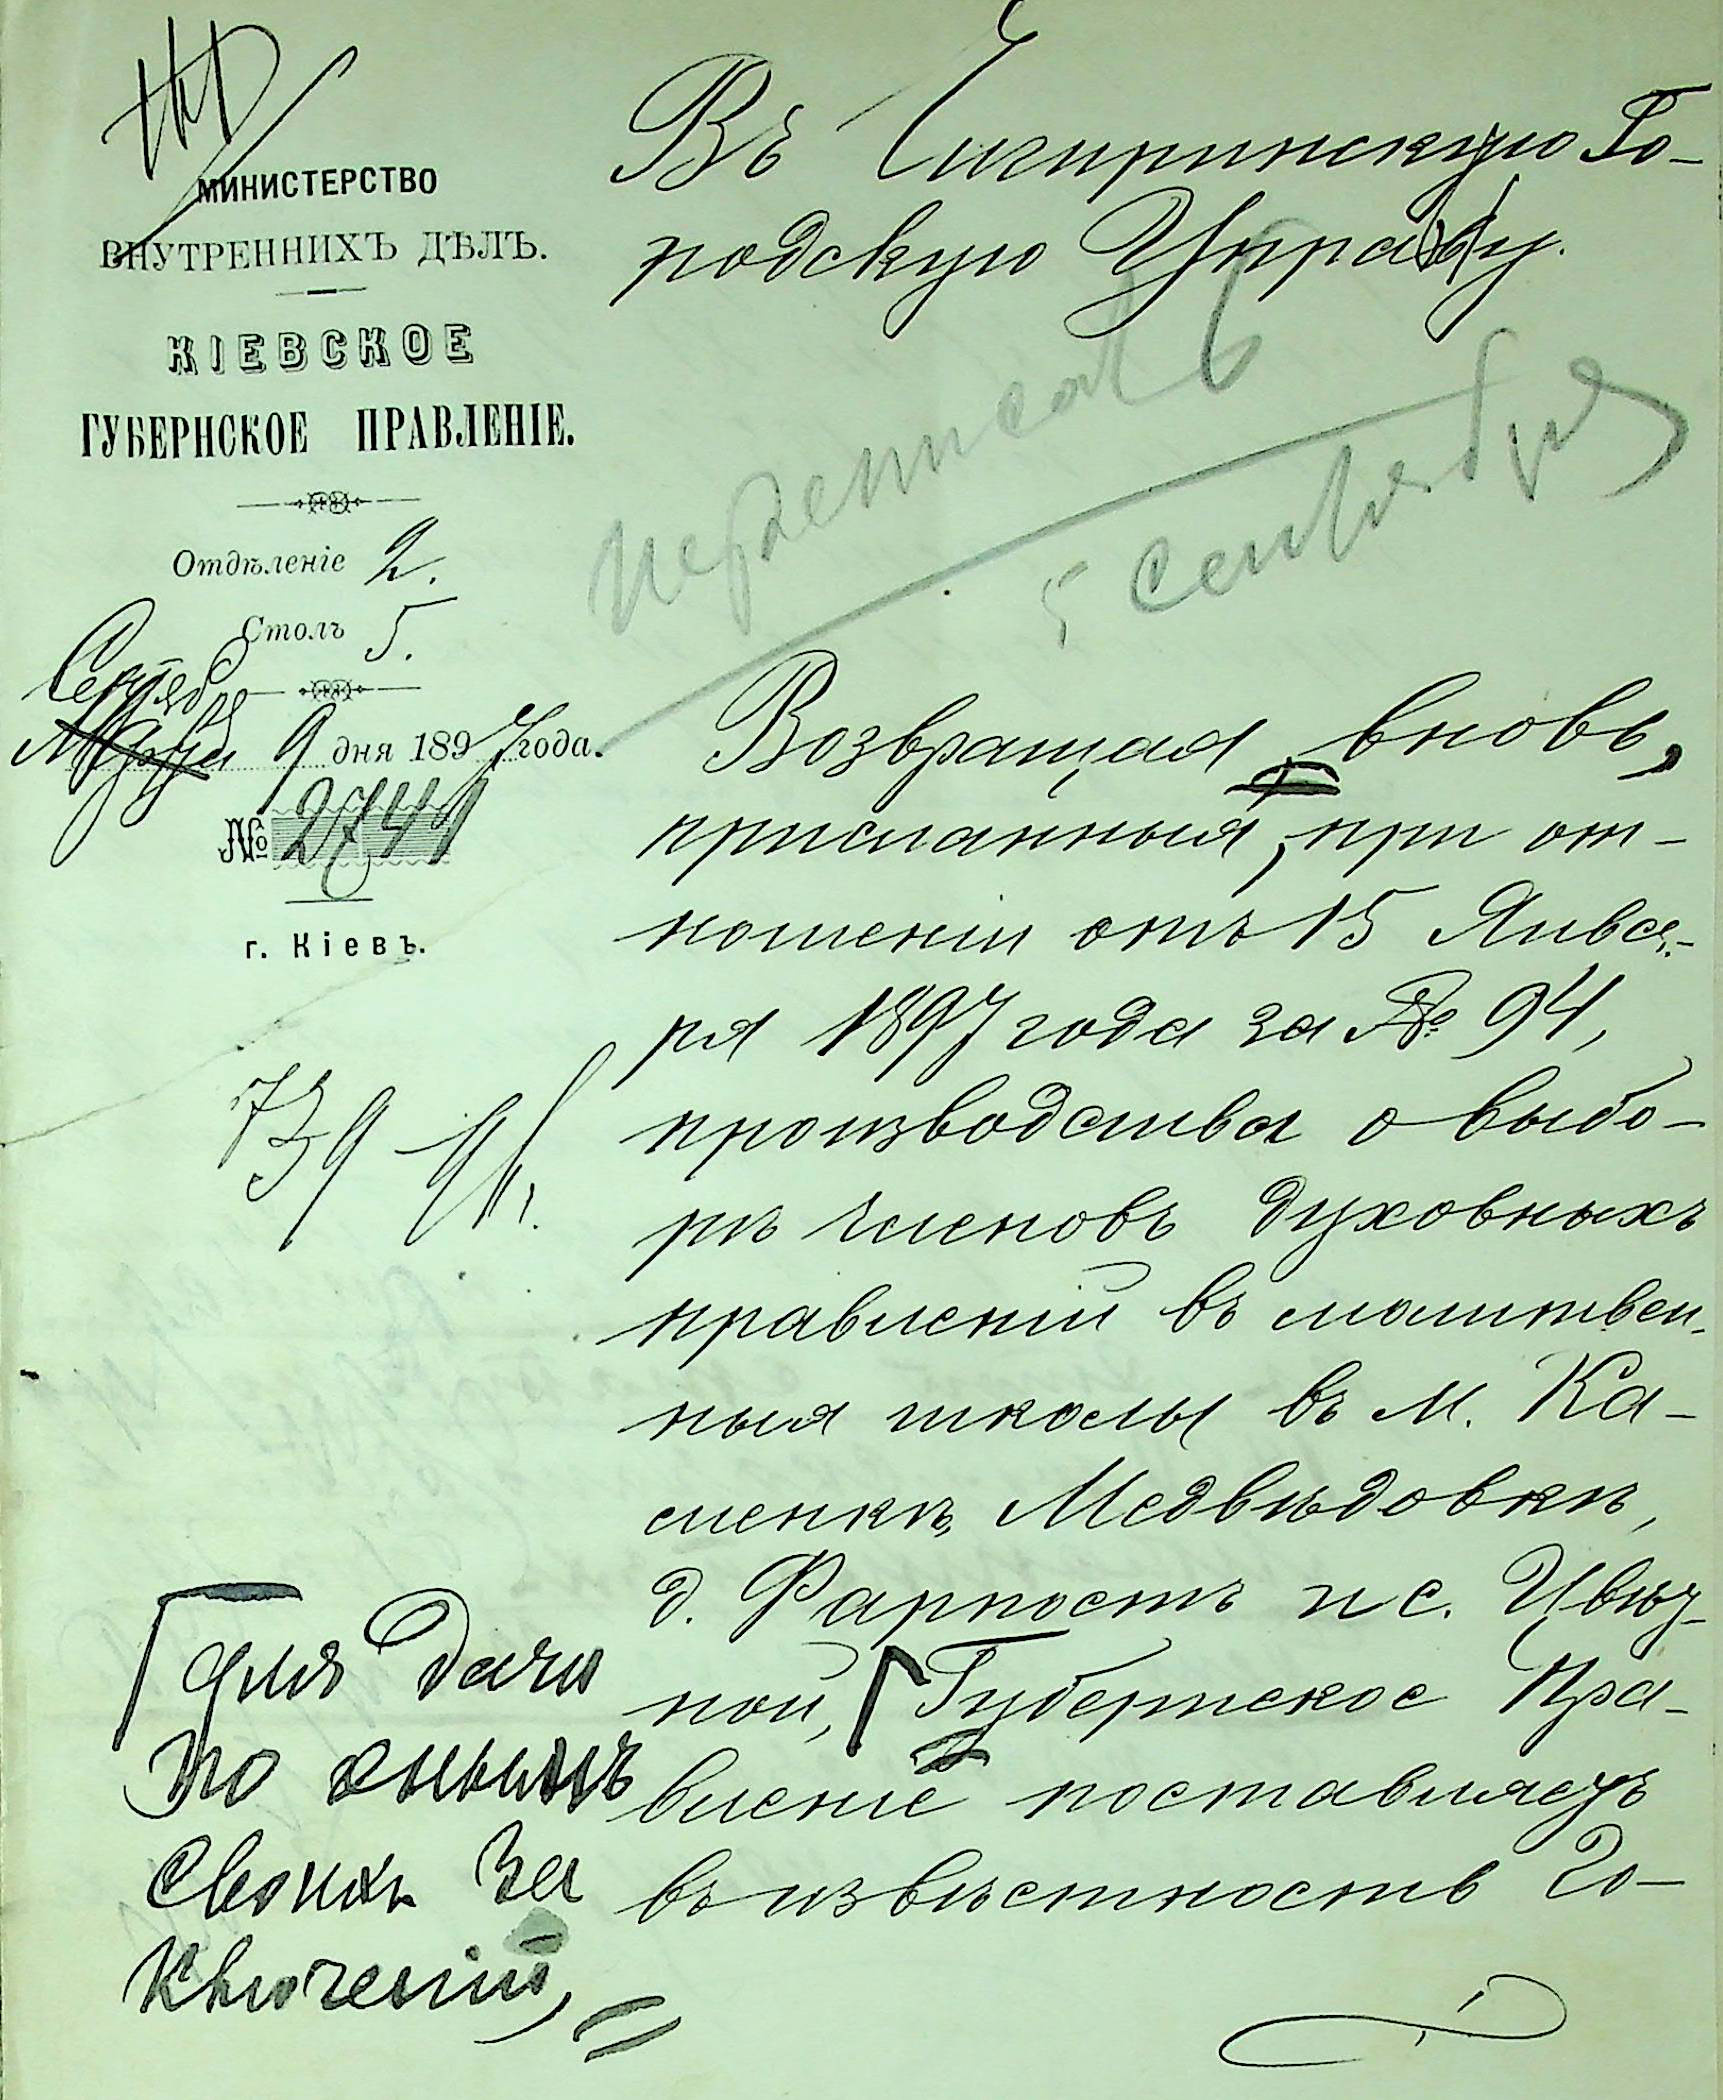 МИНИСТЕРСТВО
ВНУТРЕННИХЪ ДѢЛЪ.
КІЕВСКОЕ
ГУБЕРНСКОЕ ПРАВЛЕНІЕ.
Отдѣленіе 2.
Столъ 5.
Сентября
9 дня 1897 года.
№ 2741
г. Кіевъ.
739
Въ Чигиринскую Го-
родскую Управу.
переписать
5 сентября
Возвращая вновь,
присланныя, при от-
ношеніи отъ 15 Янва-
ря 1897 года за № 94,
производства о выбо-
рѣ членовъ духовныхъ
правленій въ молитвен-
ныя школы въ м. Ка-
менкѣ, Медвѣдовкѣ,
д. Фарпостъ и с. Цвѣт-
ной, Губернское Пра-
вленіе поставляетъ
въ извѣстность Го-
для дачи
по онымъ
своихъ за
ключеній,